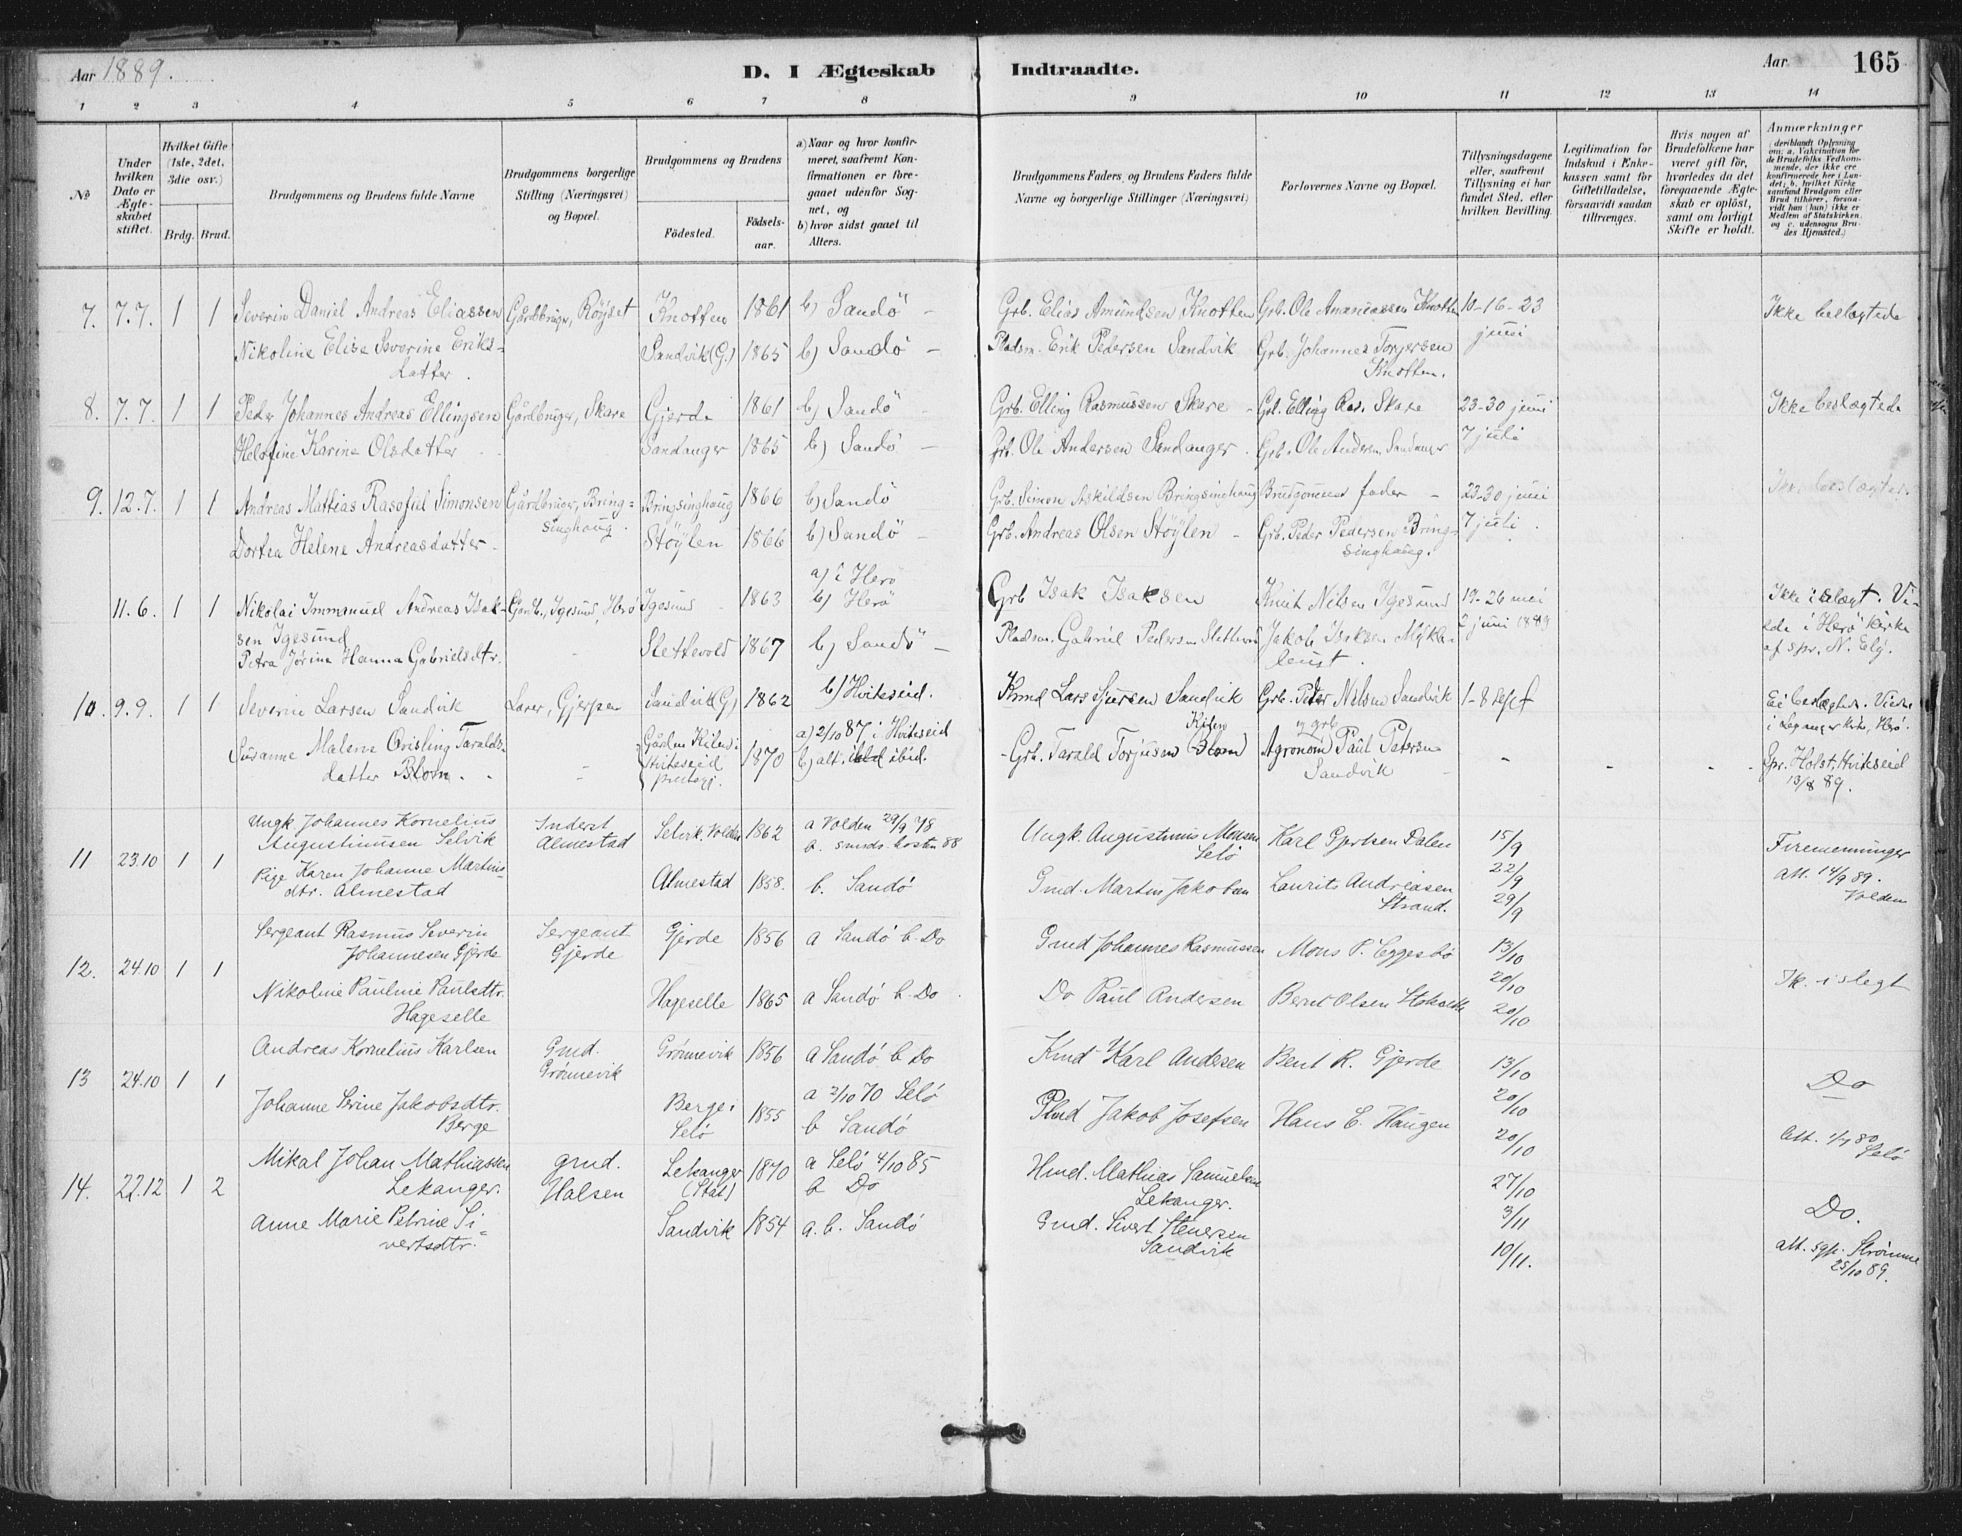 Aar 1889.
D. I Ægteskab
Indtraadte.
Aar
165
1 2 3 4 5 6 7 8 9 10 11 12 13 14
No
Under hvilken Dato er Ægteskabet stiftet.
Hvilket Gifte (1ste, 2det, 3die osv.)
Brdg. Brud.
Brudgommens og Brudens fulde Navne
Brudgommens borgerlige Stilling (Næringsvei) og Bopæl.
Brudgommens og Brudens
Fødested.
Fødselsaar.
a) Naar og hvor konfirmeret, saafremt Konfirmationen er foregaaet udenfor Sognet, og
b) hvor sidst gaaet til Alters.
Brudgommens Faders, og Brudens Faders fulde Navne og borgerlige Stillinger (Næringsvei)
Forlovernes Navne og Bopæl.
Tillysningsdagene eller, saafremt Tillysning ei har fundet Sted, efter hvilken Bevilling.
Legitimation for Indskud i Enkekassen samt for Giftetilladelse, forsaavidt saadan tiltrænges.
Hvis nogen af Brudefolkene har været gift før, hvorledes da det foregaaende Ægteskab er opløst, samt om lovligt Skifte er holdt.
Anmærkninger
(deriblandt Oplysning om: a. Vakcination for de Brudefolks Vedkommende, der ikke ere konfirmerede her i Landet; b. hvilket Kirkesamfund Brudgom eller Brud tilhører, forsaavidt han (hun) ikke er Medlem af Statskirken, og c. udensogns Brudes Hjemsted.)
7. 7.7. 1 1 Severin Daniel Andreas Eliassen Gårdbruger, Röyset Knotten 1861 b) Sandö - Grb. Elias Amundsen Knotten Grb. Ole Ananiassen Knotten 10-16-23 juni Ikke beslægtede
Nikoline Elise Severine Eriksdatter. Sandvik (G.) 1865 b) Sandö - Pladsm. Erik Pedersen Sandvik Grb. Johannes Torgersen Knotten.
8. 7.7 1 1 Peder Johannes Andreas Ellingsen Gårdbruger, Skare Gjerde 1861 b) Sandö - Grb. Elling Rasmussen Skare - Grb. Elling Ras. Skare 23-30 juni 7 juli Ikke beslægtede
Karine Olsdatter Sandanger 1865 b) Sandö - Grb. Ole Andersen Sandanger. Grb. Ole Andersen Sandanger
9. 12.7. 1 1 Andreas Mattias Rasofiel Simonsen Gårdbruger, Bringsinghaug. Bringsinghaug 1866 b) Sandö Grb. Simon Askildsen Bringsinghaug Brudgommens fader - 23-30 juni 7 juli. Ikke beslægtede.
Dortea Helene Andreasdatter - Stöylen 1866 b) Sandö - Grb. Andreas Olsen Stöylen - Grb. Peder Pedersen Bringsinghaug.
11.6. 1 1 Nikolai Immanuel Andreas Isaksen Igesund Gardb., Igesund, Herö Igesund 1863 a) i Herö b) Herö Grb Isak Isaksen Knut Nilsen Igesund 19-26 mai 2 juni 1889 Ikke i slægt. Viede i Herö kirke af spr. N. Elg.
Petra Jörine Hanna Gabrielsdtr. - Slettevold 1867 b) Sandö - Pladsm. Gabriel Pedersen Slettevold Jakob Isaksen Myklebust.
10. 9.9. 1 1 Severin Larsen Sandvik Lærer, Gjerpen Sandvik (G.) 1862 b) Hviteseid. Kmd Lars Sjursen Sandvik Grb. Peter Nilsen Sandvik 1-8 Sept Ei beslægtede. Viede i Leganger Kirke, Herö.
Susanne Malene Qvisling Taraldsdatter Blom. - Gården Kilen i Hviteseid prestegj. 1870 a) 2/10 87 i Hviteseid b) alt. ibid. - Grb. Tarald Torjusen Kilen Blom Agronom og grb Paul Petersen Sandvik - - - Spr. Holst, Hviteseid 13/8 89.
11 23.10 1 1 Ungk. Johannes Kornelius Augustinusen Selvik Inderst Almestad Selvik. Volden 1862 a Volden 29/9 78 b. Sandø. hösten 88 Ungk. Augustinus Monsen Selö Karl Gjertsen Dalen 15/9 Firemenninger
Pige Karen Johanne Martinusdtr. Almestad Almestad 1858. b. Sandó Gmd. Martin Jakobsen Laurits Andreasen Strand. 22/9 29/9 att. 14/9 89. Volden
12. 24.10 1 1 Sergeant Rasmus Severin Johannesen Gjerde Sergeant Gjerde Gjerde 1856 a Sandó b. Do Gmd Johannes Rasmussen Mons P. Eggesbó 13/10
Nikoline Pauline Paulsdtr. Hageselle Hageselle 1865 a Sandó b. Do Do Paul Andersen Bernt Olsen 20/10 20/10 Ik. i slegt
13 24.10 1 1 Andreas Kornelius Karlsen Gmd. Grónnevik Grónnevik 1856 a Sandó b Do Kmd Karl Andersen Bent R. Gjerde 13/10 Do
Johanne Serine Jakobsdtr. Berge Berge i Selö 1855 a 2/10 70 Seló b Sandó Plmd Jakob Josefsen Hans E. Haugen 20/10 20/10 Att. Seló
14. 22.12 1 2 Mikal Johan Mathiassen Lekanger. gmd. Halsen Lekanger (Stat) 1870 a Seló 4/10 85 b Do Hmd. Mathias Samuelsen Lekanger. 27/10 Do.
Anne Marie Petrine Sivertsdtr. Sandvik 1854 a. b. Sandó Gmd. Sivert Stenersen Sandvik 3/11 10/11. att. sgp. Strömme 25/10 89.